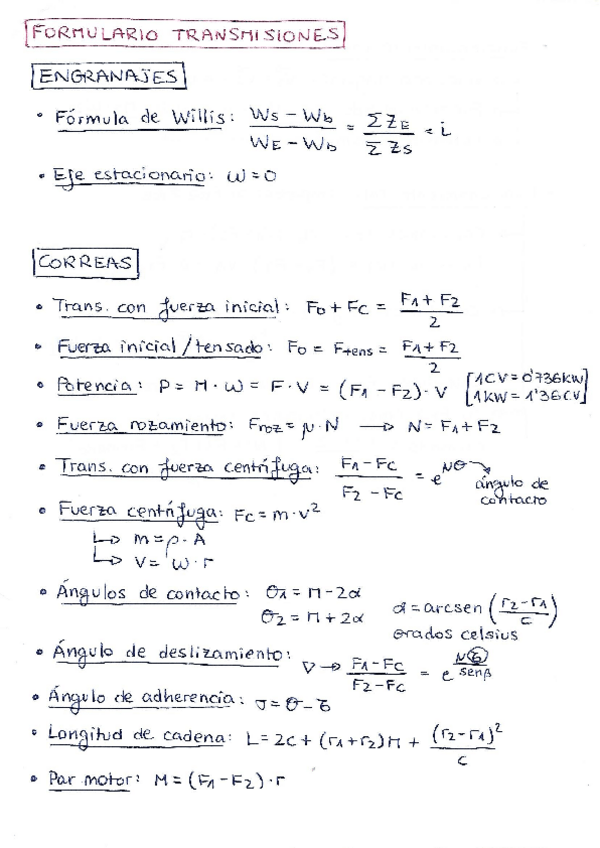 FORMULARIO TRANSMISIONES
ENGRANAJES
• Fórmula de Willis: (Ws - Wb) / (WE - Wb) = Σ ZE / Σ Zs = i
• Eje estacionario: ω = 0
CORREAS
• Trans. con fuerza inicial: F0 + Fc = (F1 + F2) / 2
• Fuerza inicial/tensado: F0 = Ftens = (F1 + F2) / 2
• Potencia: P = M · W = F · V = (F1 - F2) · V [1CV = 0'736KW] [1KW = 1'36CV]
• Fuerza rozamiento: Froz = μ · N → N = F1 + F2
• Trans. con fuerza centrífuga: (F1 - Fc) / (F2 - Fc) = e^μθ → ángulo de contacto
• Fuerza centrífuga: Fc = m · v²
↳ m = ρ · A
↳ V = W · r
• Ángulos de contacto: θ1 = π - 2α
θ2 = π + 2α
α = arcsen ((r2 - r1) / c)
grados celsius
• Ángulo de deslizamiento: ∇ → (F1 - Fc) / (F2 - Fc) = e^(μ϶ / senβ)
• Ángulo de adherencia: J = θ - Ϭ
• Longitud de cadena: L = 2c + (r1 + r2)π + (r2 - r1)² / c
• Par motor: M = (F1 - F2) · r